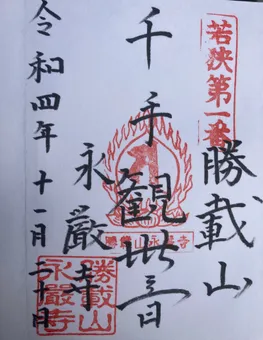 若狭第一番
勝載山
千手観世音
永厳寺
令和四年十一月二十日
勝載山永厳寺
勝載山
永厳寺